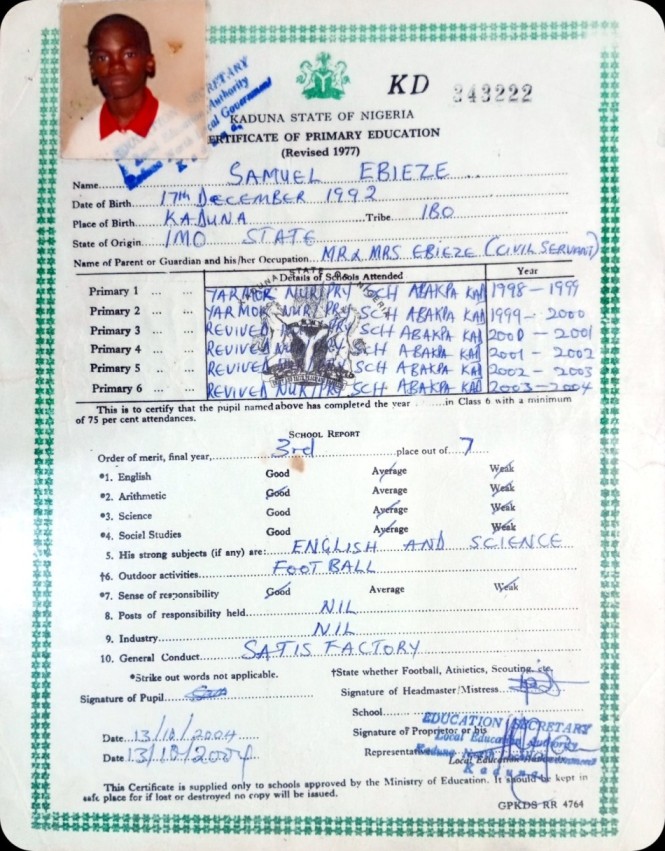 KD 343222
KADUNA STATE OF NIGERIA
CERTIFICATE OF PRIMARY EDUCATION
(Revised 1977)
Name SAMUEL EBIEZE
Date of Birth 17th DECEMBER 1992
Place of Birth KADUNA Tribe IBO
State of Origin IMO STATE
Name of Parent or Guardian and his/her Occupation MR & MRS EBIEZE (CIVIL SERVANT)
Details of Schools Attended Year
Primary 1 YARMOR NUR/PRY SCH ABAKPA KAD 1998 – 1999
Primary 2 YARMOR NUR/PRY SCH ABAKPA KAD 1999 – 2000
Primary 3 REVIVED NUR/PRY SCH ABAKPA KAD 2000 – 2001
Primary 4 REVIVED NUR/PRY SCH ABAKPA KAD 2001 – 2002
Primary 5 REVIVED NUR/PRY SCH ABAKPA KAD 2002 – 2003
Primary 6 REVIVED NUR/PRY SCH ABAKPA KAD 2003 – 2004
This is to certify that the pupil named above has completed the year ........in Class 6 with a minimum
of 75 per cent attendances.
SCHOOL REPORT
Order of merit, final year, 3rd place out of 7
*1. English Good Average Weak
*2. Arithmetic Good Average Weak
*3. Science Good Average Weak
*4. Social Studies Good Average Weak
5. His strong subjects (if any) are: ENGLISH AND SCIENCE
†6. Outdoor activities FOOTBALL
*7. Sense of responsibility Good Average Weak
8. Posts of responsibility held NIL
9. Industry NIL
10. General Conduct SATISFACTORY
*Strike out words not applicable. †State whether Football, Athletics, Scouting, etc.
Signature of Pupil Signature of Headmaster/Mistress
School
EDUCATION SECRETARY
Date 13/10/2004 Signature of Proprietor or his
Local Education Authority
Date 13/10/2004 Representative
Kaduna
This Certificate is supplied only to schools approved by the Ministry of Education. It should be kept in
safe place for if lost or destroyed no copy will be issued.
GPKDS RR 4764